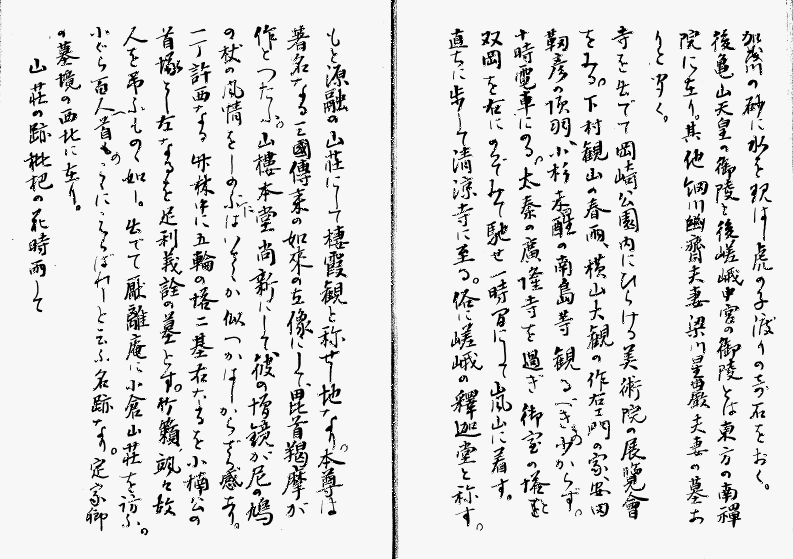 加茂川の砂に水を現はし虎の子渡りの奇石をおく。
後亀山天皇の御陵と後嵯峨中宮の御陵とは東方の南禅
院に在り。其他細川幽齋夫妻梁川星巖夫妻の墓あ
りと聞く。
寺を出でて岡崎公園内にひらける美術院の展覧會
をみる。下村観山の春雨、横山大観の作右エ門の家、安田
靭彦の項羽、小杉未醒の南島等観るべき少からず。
十時電車にのる。太秦の廣隆寺を過ぎ御室の塔を
双岡を右にのぞみて馳せ一時間にして嵐山に着す。
直ちに歩して清凉寺に至る。俗に嵯峨の釋迦堂と称す。
もと源融の山荘にして棲霞観と称せし地なり。本尊は
著名なる三國傳来の如来の立像にして毘首羯摩が
作とつたふ。山樓本堂尚新にして彼の増鏡が尼の鳩
の杖の風情をしのぶにはいさゝか似つかはしからざる感あり。
一丁許西なる竹林中に五輪の塔二基右なるを小楠公の
首塚とし左なるを足利義詮の墓とす。竹籟颯々故
人を弔ふものゝ如し。出でて厭離庵に小倉山荘を訪ふ。
小ぐら百人首のこゝにえらばれしと云ふ名跡なり。定家卿
の墓境の西北に在り。
山荘の跡枇杷の花時雨して